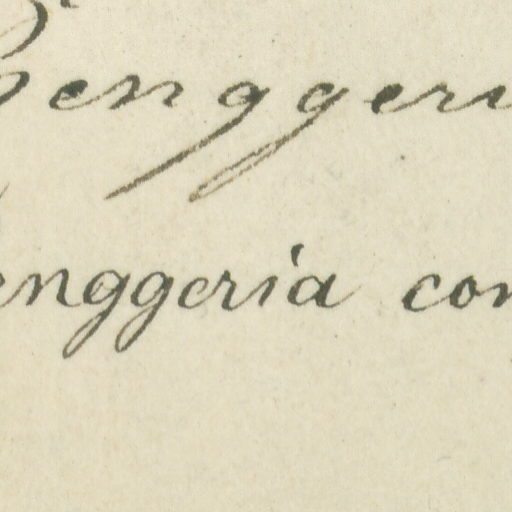 Zenggeri
enggeria con